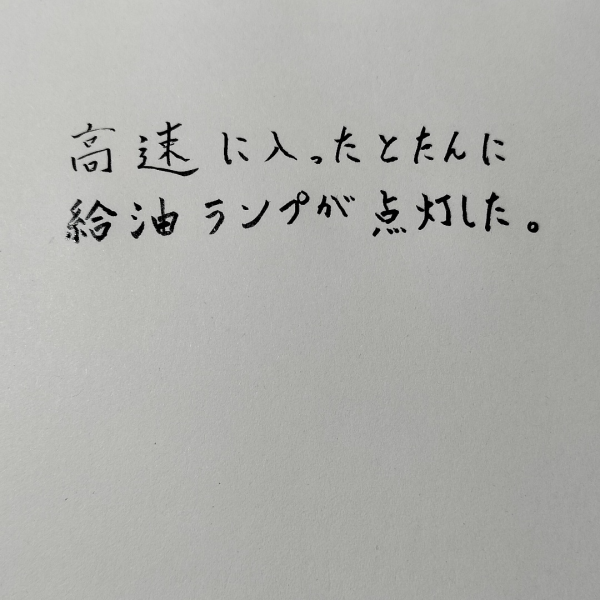 高速に入ったとたんに
給油ランプが点灯した。